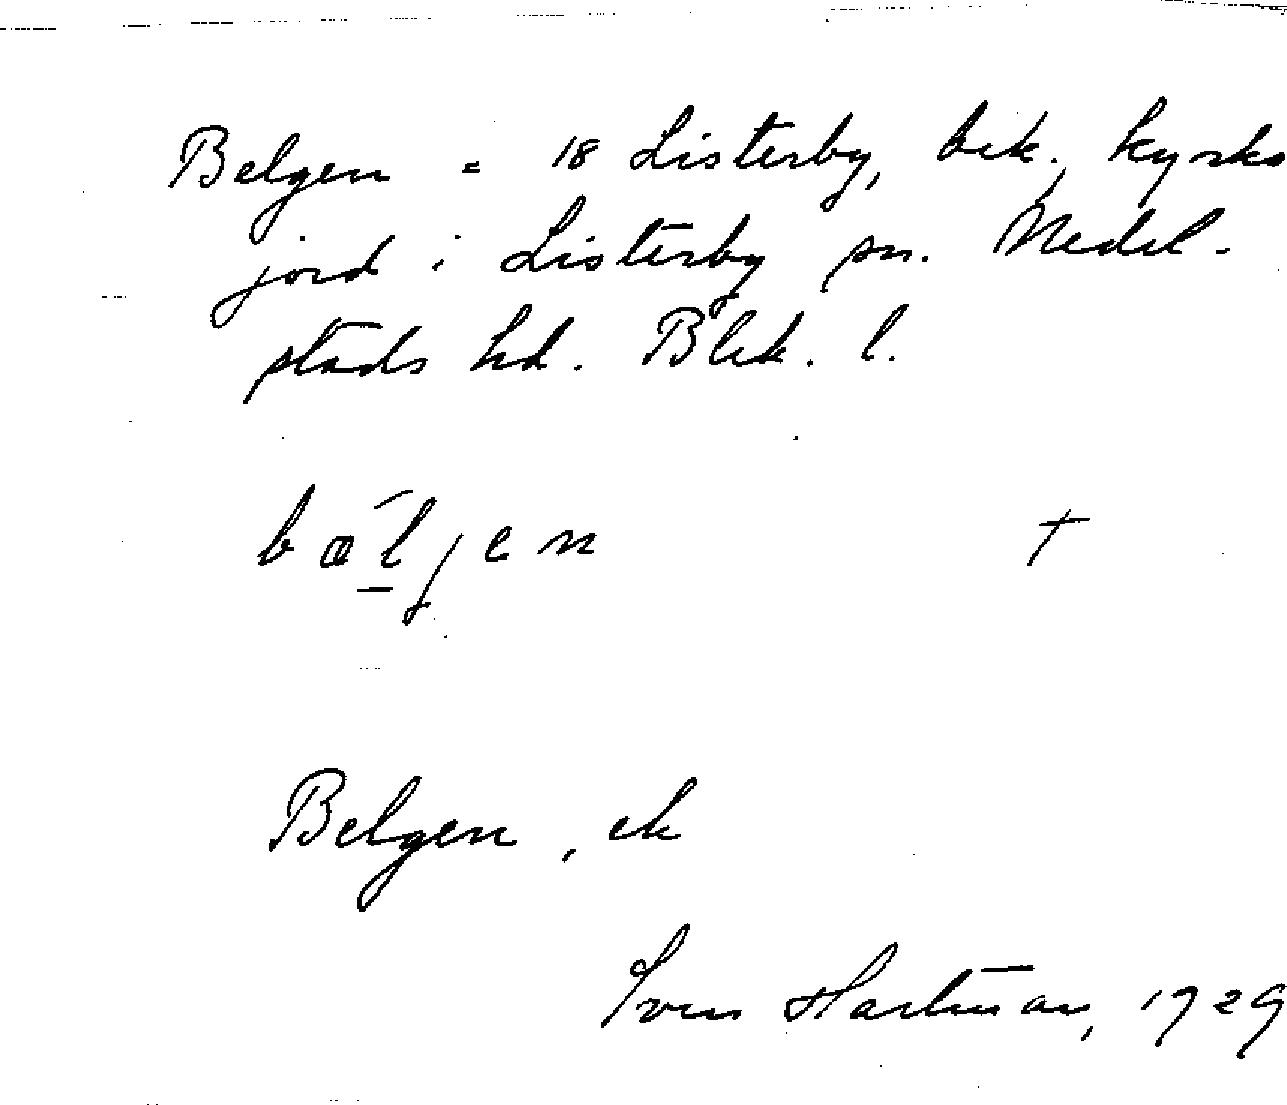 Belgen = 18 Listerby, bek. kyrko
jord i Listerby sn. Medel-
stads hd. Blek. l.
bæljen †
Belgen, ek
Sven Hartman, 1929